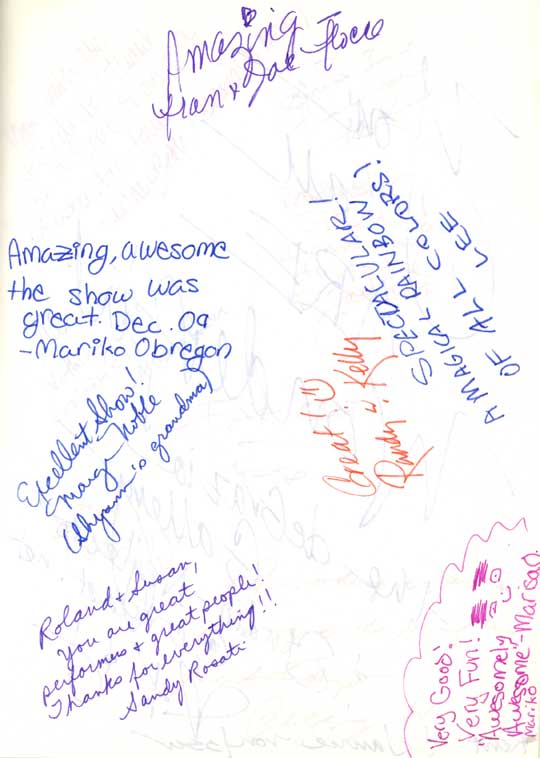 Amazing
Fran & Joe
Amazing, awesome
the show was
great. Dec. 09
-Mariko Obregon
SPECTACULAR!
A MAGICAL RAINBOW
OF ALL COLORS!
LEE
Great! :)
Randy & Kelly
Excellent Show!
Marge Noble
grandma)
Roland & Susan,
You are great
performers & great people!
Thanks for everything!!
Sandy Rosati
Very Good!
Very Fun!
"Awesomely
Awesome"-Marisa
Mariko